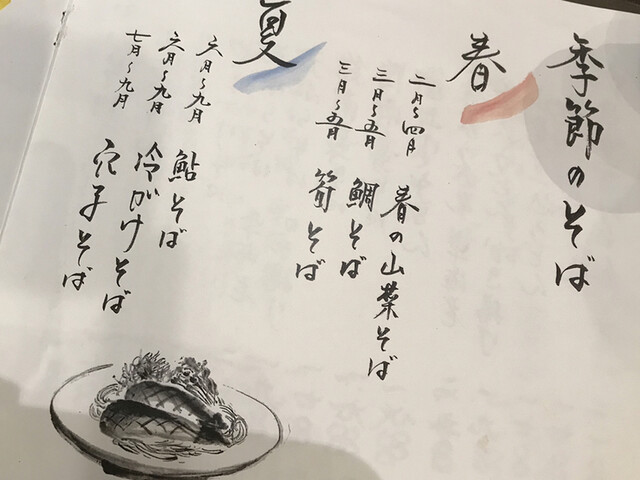 季節のそば
春
二月～四月 春の山菜そば
三月～五月 鯛そば
三月～五月 筍そば
夏
六月～九月 鮎そば
六月～九月 冷がけそば
七月～九月 穴子そば